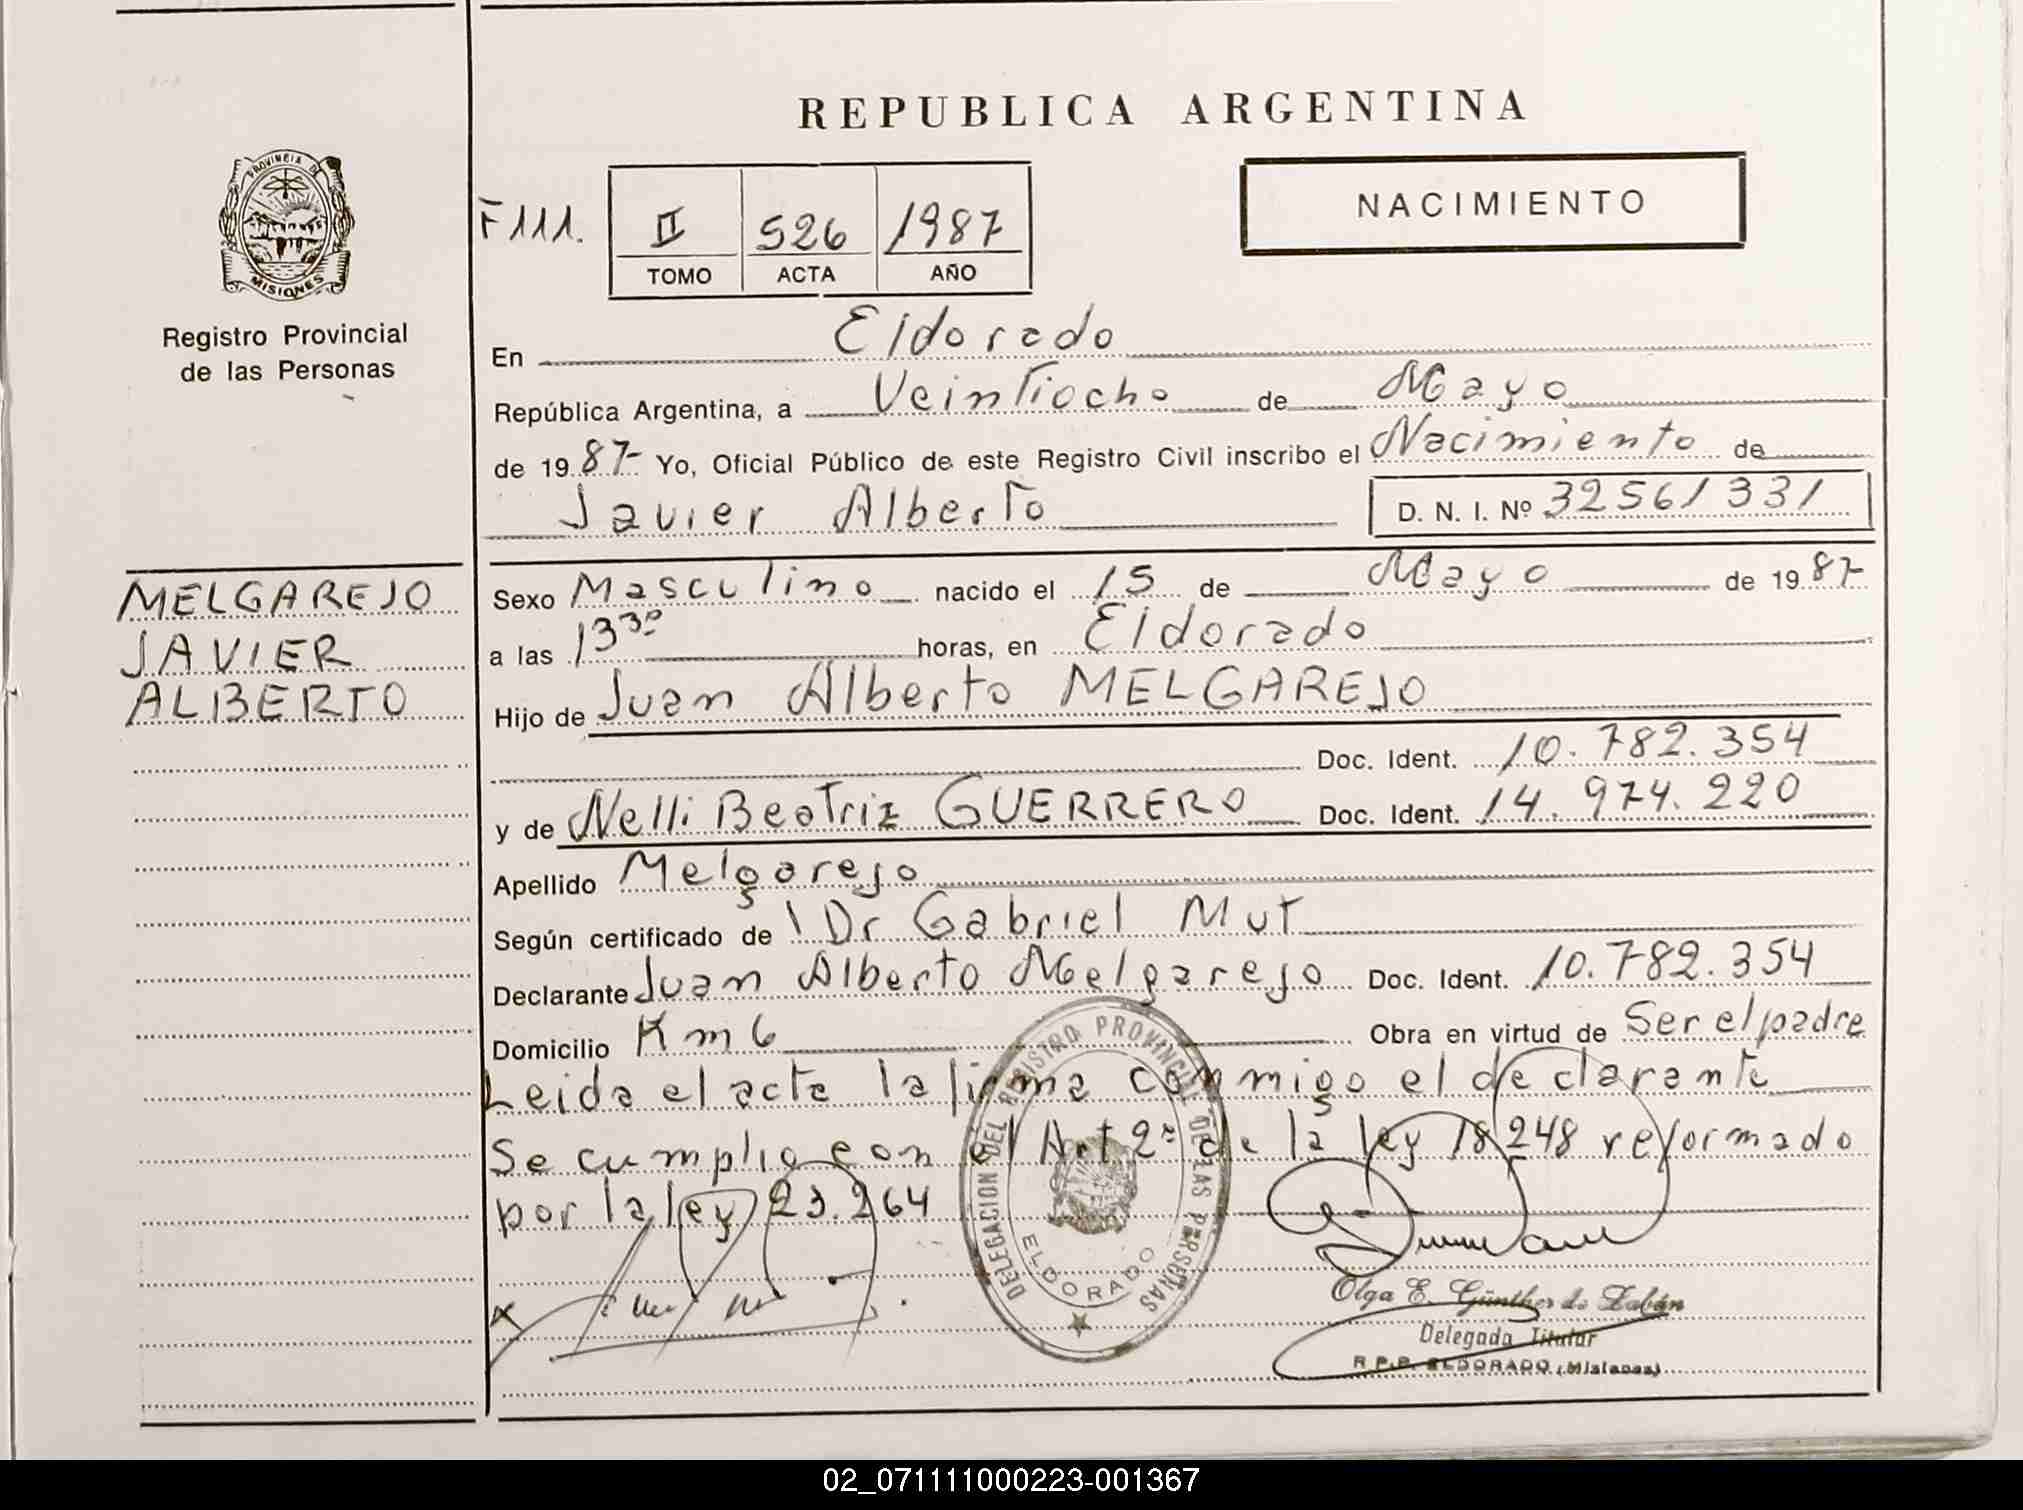 REPUBLICA ARGENTINA
PROVINCIA DE MISIONES
Registro Provincial
de las Personas
F 111.
II 526 1987
TOMO ACTA AÑO
NACIMIENTO
En Eldorado
República Argentina, a Veintiocho de Mayo
de 19 87- Yo, Oficial Público de este Registro Civil inscribo el Nacimiento de
Javier Alberto D. N. I. Nº 32561331
MELGAREJO
JAVIER
ALBERTO
Sexo Masculino nacido el 15 de Mayo de 19 87-
a las 13 30 horas, en Eldorado
Hijo de Juan Alberto MELGAREJO
Doc. Ident. 10.782.354
y de Nelli Beatriz GUERRERO Doc. Ident. 14.974.220
Apellido Melgarejo
Según certificado de Dr Gabriel Mut
Declarante Juan Alberto Melgarejo Doc. Ident. 10.782.354
Domicilio Km 6 Obra en virtud de Ser el padre
Leida el acta la firma conmigo el declarante
Se cumplio con el Art 2º de la ley 18248 reformado
por la ley 23.264
DELEGACION DEL REGISTRO PROVINCIAL DE LAS PERSONAS
ELDORADO
Olga E. Günther de Zabán
Delegada Titular
R.P.P. ELDORADO (Misiones)
02_071111000223-001367